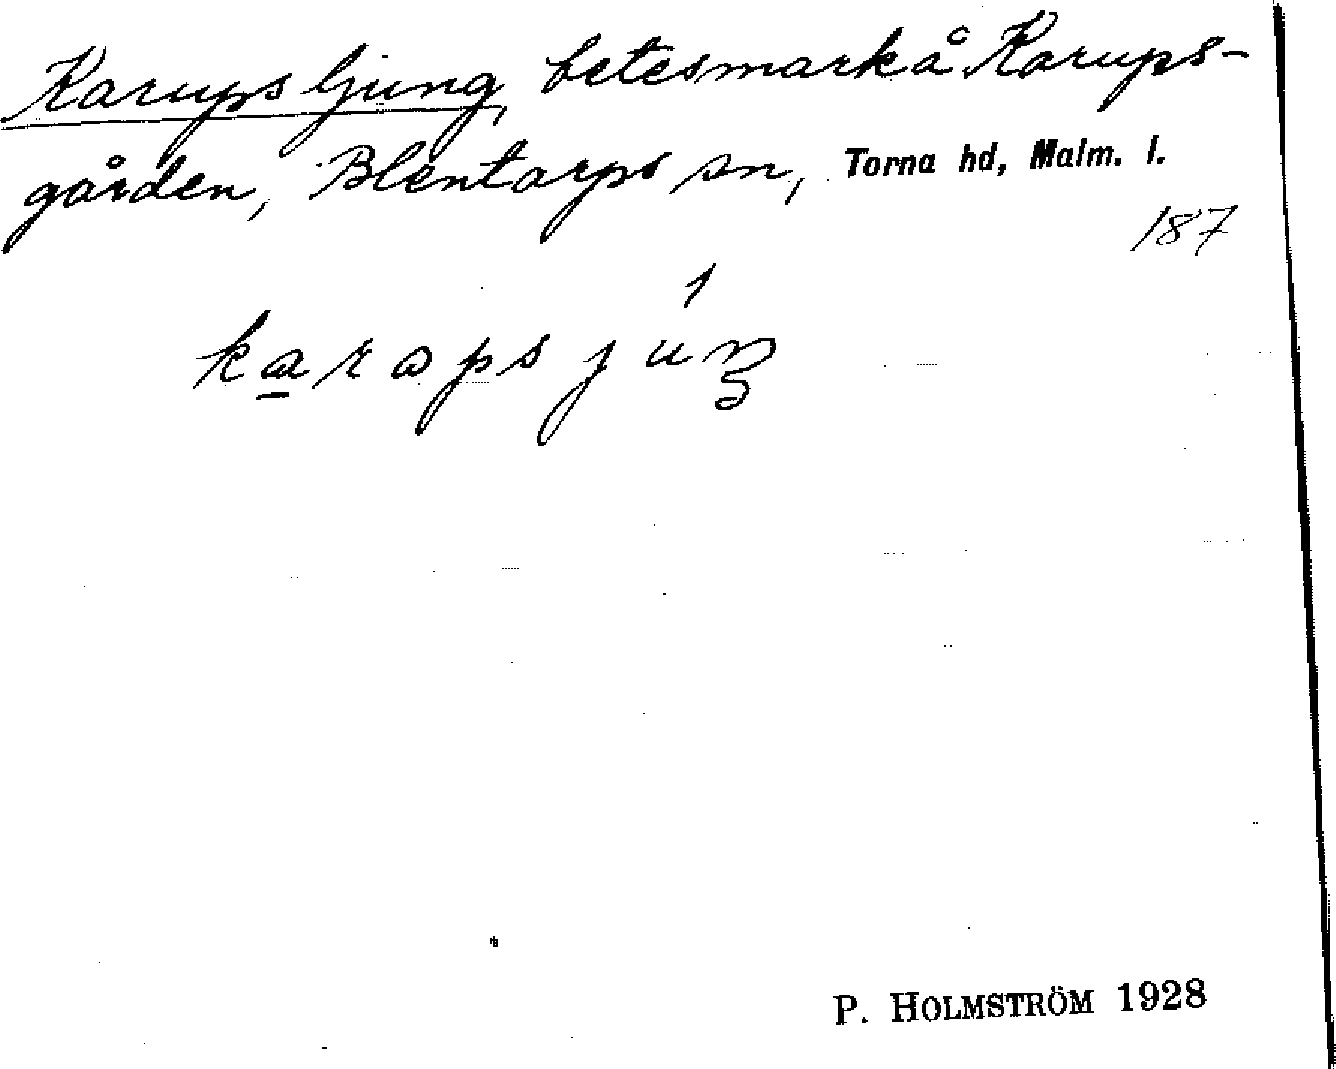 Karups ljung, betesmark å Karups-
gården, Blentarps sn, Torna hd, Malm. l.
187
P. HOLMSTRÖM 1928